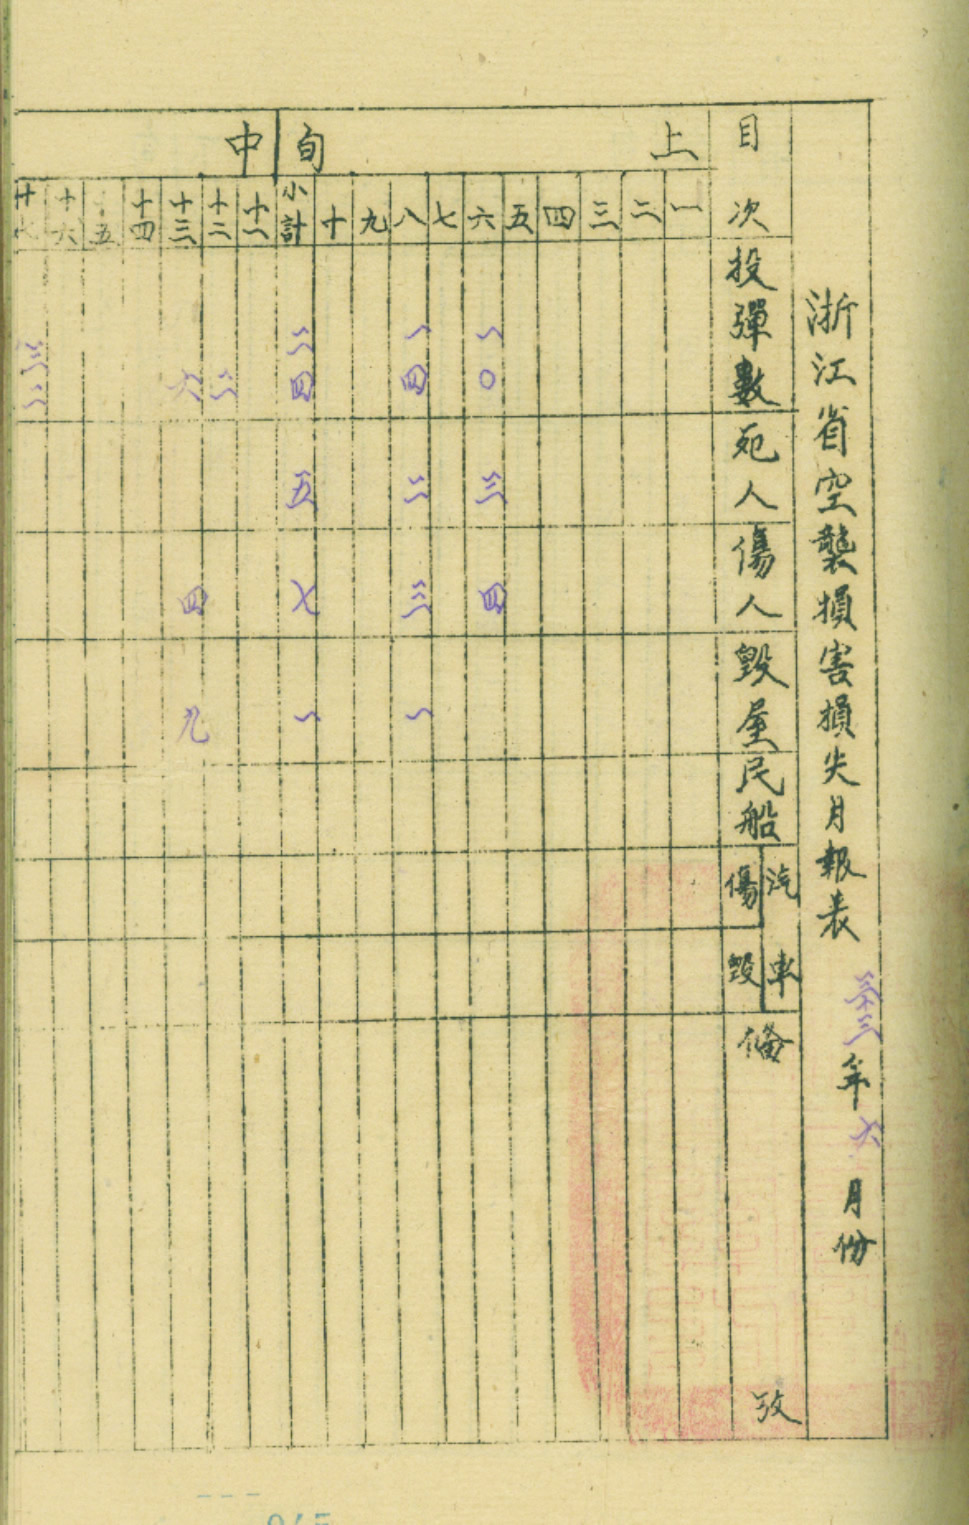 浙江省空襲損害損失月報表 三十三年六月份
目次 投彈數 死人 傷人 毀屋 民船 汽車 傷 毀 備攷
上旬
一
二
三
四
五
六 一〇 三 四
七
八 一四 二 三 一
九
十
小計 二四 五 七 一
中
十一
十二 二
十三 六 四 九
十四
十五
十六
三二